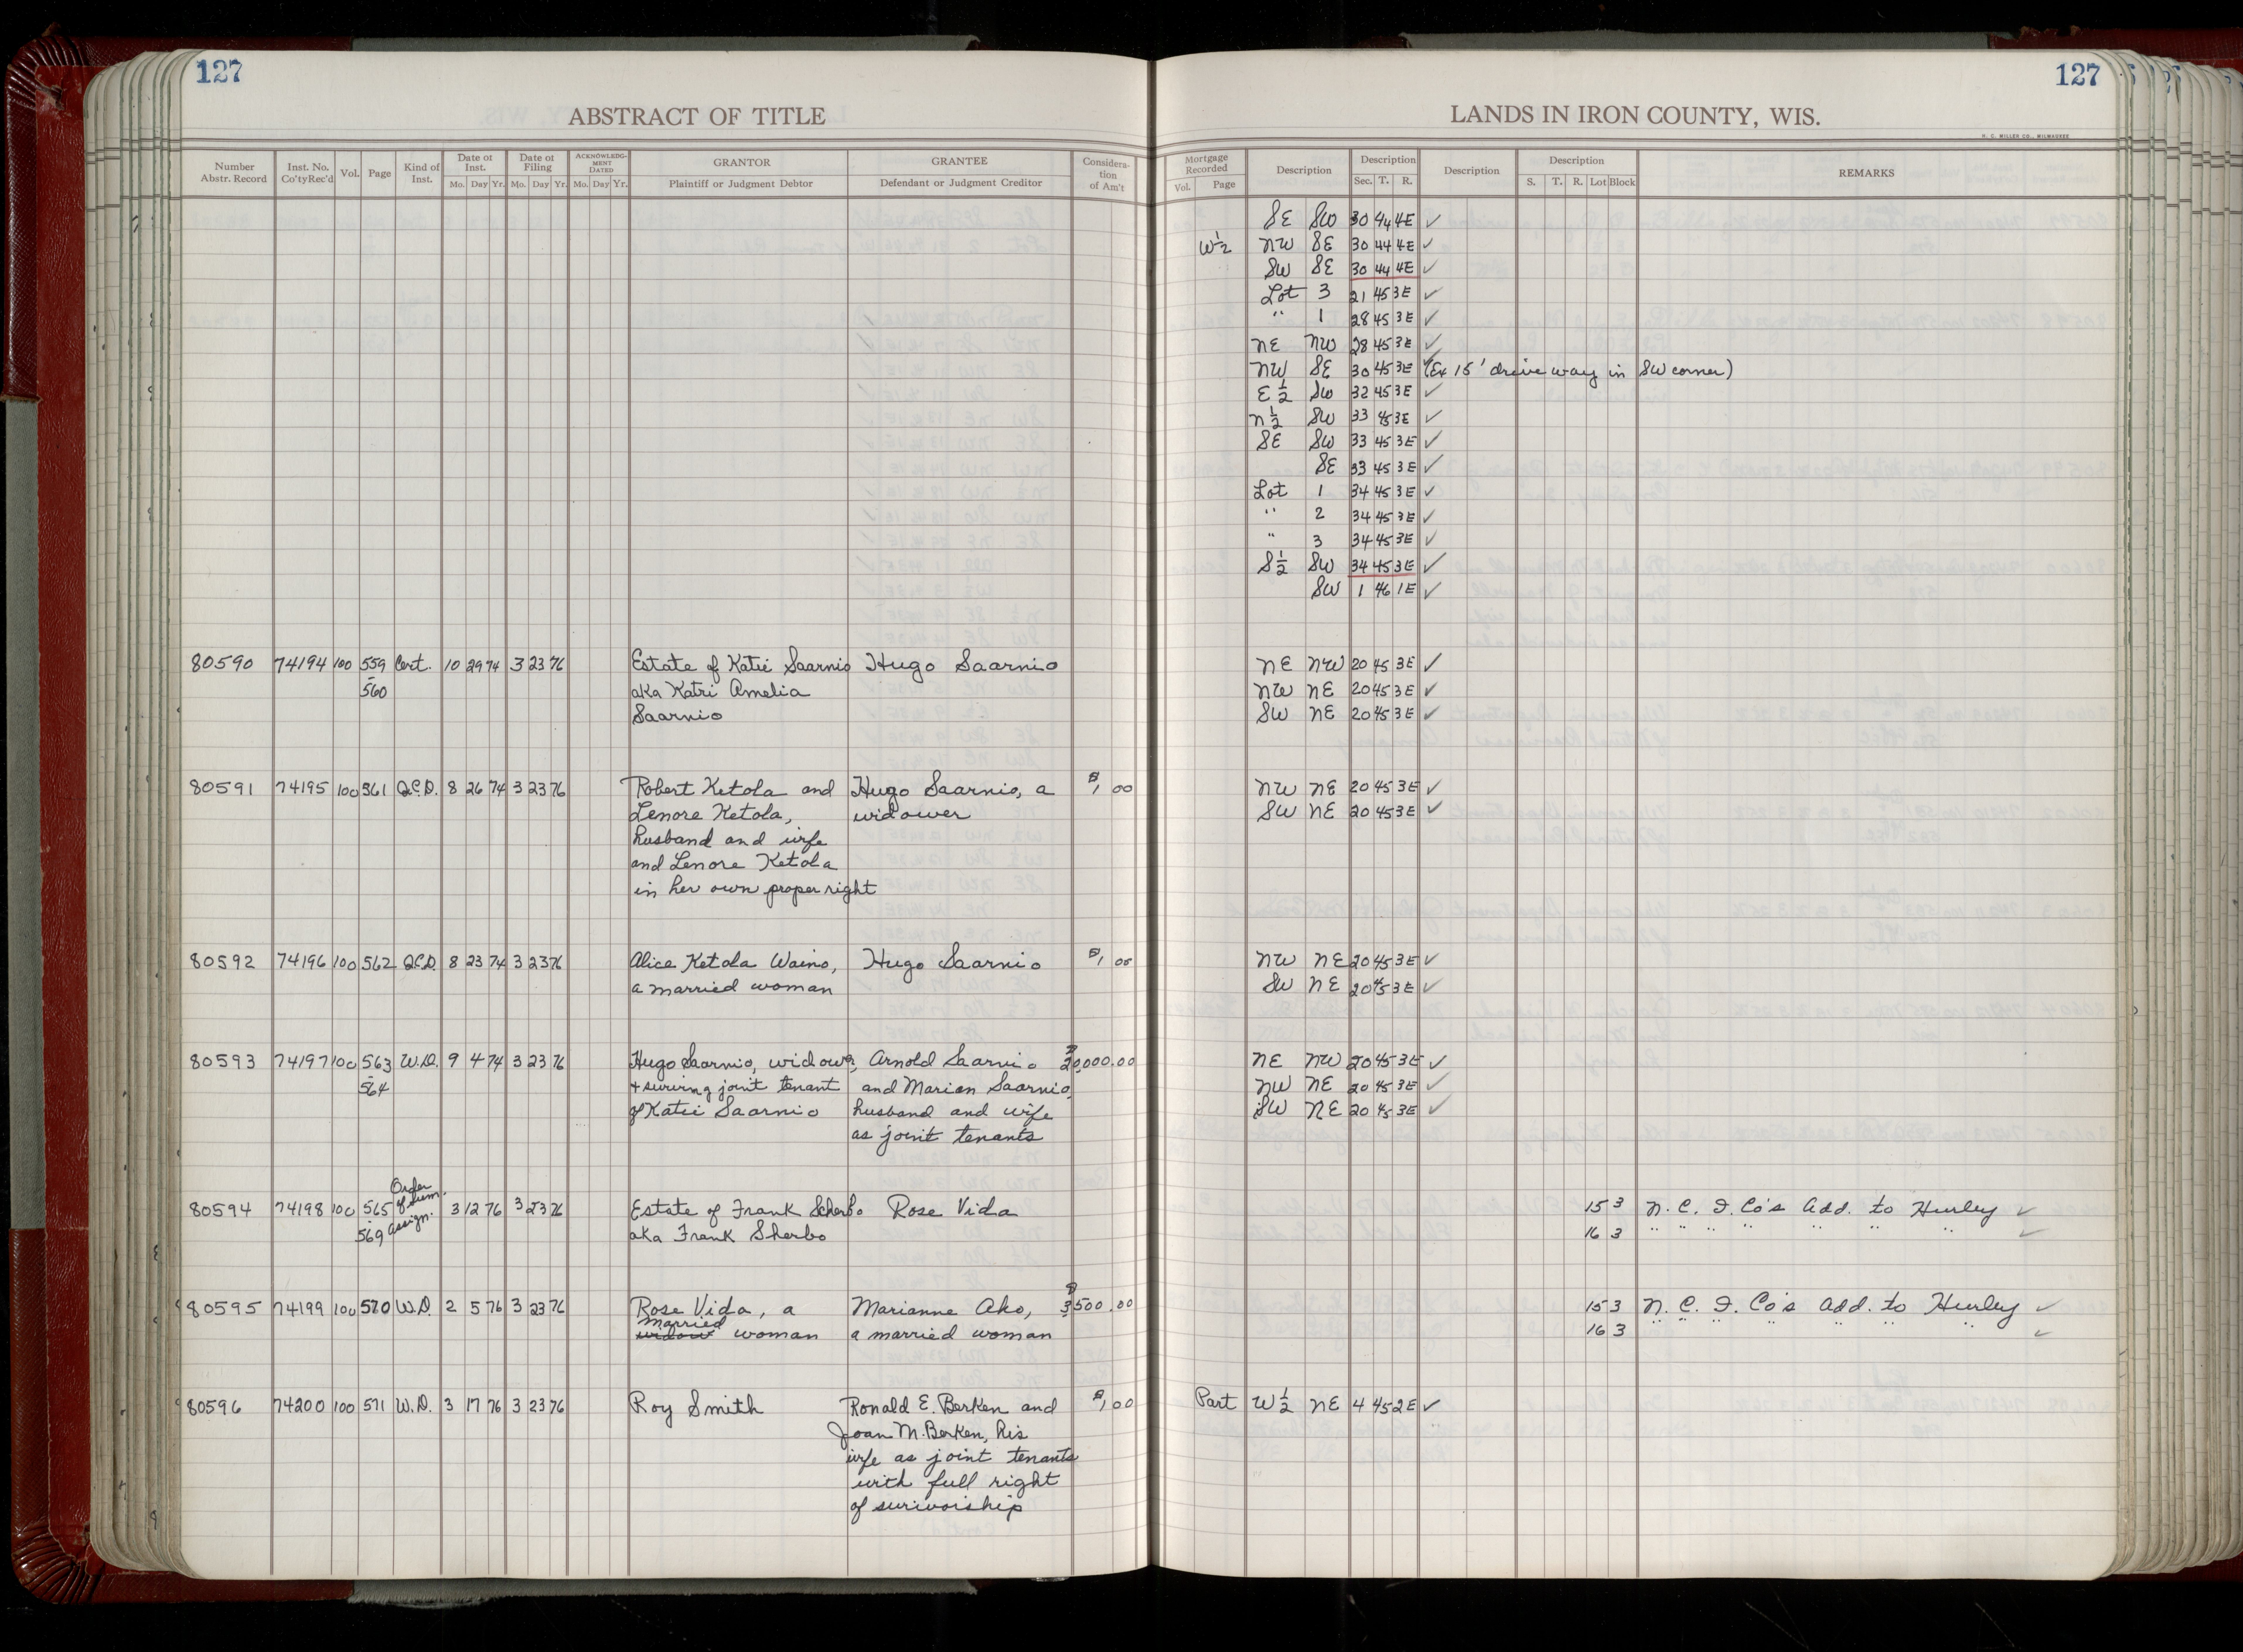 127
127
ABSTRACT OF TITLE
LANDS IN IRON COUNTY, WIS.
H. C. MILLER CO., MILWAUKEE
Number Abstr. Record Inst. No. Co'ty Rec'd Vol. Page Kind of Inst. Date of Inst. Mo. Day Yr. Date of Filing Mo. Day Yr. ACKNOWLEDGMENT DATED Mo. Day Yr. GRANTOR Plaintiff or Judgment Debtor GRANTEE Defendant or Judgment Creditor Consideration of Am't
Mortgage Recorded Vol. Page Description Description Sec. T. R. Description Description S. T. R. Lot Block REMARKS
SE SW 30 44 4E ✓
W½ NW SE 30 44 4E ✓
SW SE 30 44 4E ✓
Lot 3 21 45 3E ✓
" 1 28 45 3E ✓
NE NW 28 45 3E ✓
NW SE 30 45 3E ✓ (Ex 15' drive way in SW corner)
E½ SW 32 45 3E ✓
N½ SW 33 45 3E ✓
SE SW 33 45 3E ✓
SE 33 45 3E ✓
Lot 1 34 45 3E ✓
" 2 34 45 3E ✓
" 3 34 45 3E ✓
S½ SW 34 45 3E ✓
SW 1 46 1E ✓
80590 74194 100 559 Cert. 10 29 74 3 23 76 Estate of Katie Saarnio Hugo Saarnio NE NW 20 45 3E ✓
-560 aka Katri Amelia NW NE 20 45 3E ✓
Saarnio SW NE 20 45 3E ✓
80591 74195 100 561 Q.C.D. 8 26 74 3 23 76 Robert Ketola and Hugo Saarnio, a $1.00 NW NE 20 45 3E ✓
Lenore Ketola, widower SW NE 20 45 3E ✓
husband and wife
and Lenore Ketola
in her own proper right
80592 74196 100 562 Q.C.D. 8 23 74 3 23 76 Alice Ketola Waino, Hugo Saarnio $1.00 NW NE 20 45 3E ✓
a married woman SW NE 20 45 3E ✓
80593 74197 100 563 W.D. 9 4 74 3 23 76 Hugo Saarnio, widower, Arnold Saarnio $20,000.00 NE NW 20 45 3E ✓
-564 + surving joint tenant and Marion Saarnio, NW NE 20 45 3E ✓
of Katie Saarnio husband and wife SW NE 20 45 3E ✓
as joint tenants
80594 74198 100 565 Order of Sum. Assign. 3 12 76 3 23 76 Estate of Frank Scherbo Rose Vida 15 3 N. C. I. Co's Add. to Hurley ✓
-569 aka Frank Sherbo 16 3 " " " " " " " ✓
80595 74199 100 570 W.D. 2 5 76 3 23 76 Rose Vida, a Marianne Ako, $3500.00 15 3 N. C. I. Co's Add. to Hurley ✓
married widow woman a married woman 16 3 " " " " " " " ✓
80596 74200 100 571 W.D. 3 17 76 3 23 76 Roy Smith Ronald E. Berken and $1.00 Part W½ NE 4 45 2E ✓
Joan M. Berken, his
wife as joint tenants
with full right
of surivorship